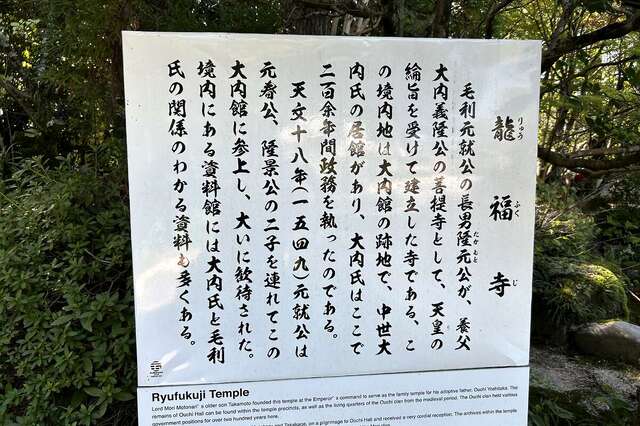 龍福寺
りゅう ふく じ
毛利元就公の長男隆元公が、養父
たかもと
大内義隆公の菩提寺として、天皇の
綸旨を受けて建立した寺である、こ
の境内地は大内館の跡地で、中世大
内氏の居館があり、大内氏はここで
二百余年間政務を執ったのである。
天文十八年(一五四九)元就公は
元春公、隆景公の二子を連れてこの
大内館に参上し、大いに歓待された。
境内にある資料館には大内氏と毛利
氏の関係のわかる資料も多くある。
Ryufukuji Temple
Lord Mori Motonari' s older son Takamoto founded this temple at the Emperor' s command to serve as the family temple for his adoptive father, Ouchi Yoshitaka. The
remains of Ouchi Hall can be found within the temple precincts, as well as the living quarters of the Ouchi clan from the medieval period. The Ouchi clan held various
government positions for over two hundred years here.
and Takakage, on a pilgrimage to Ouchi Hall and received a very cordial reception. The archives within the temple